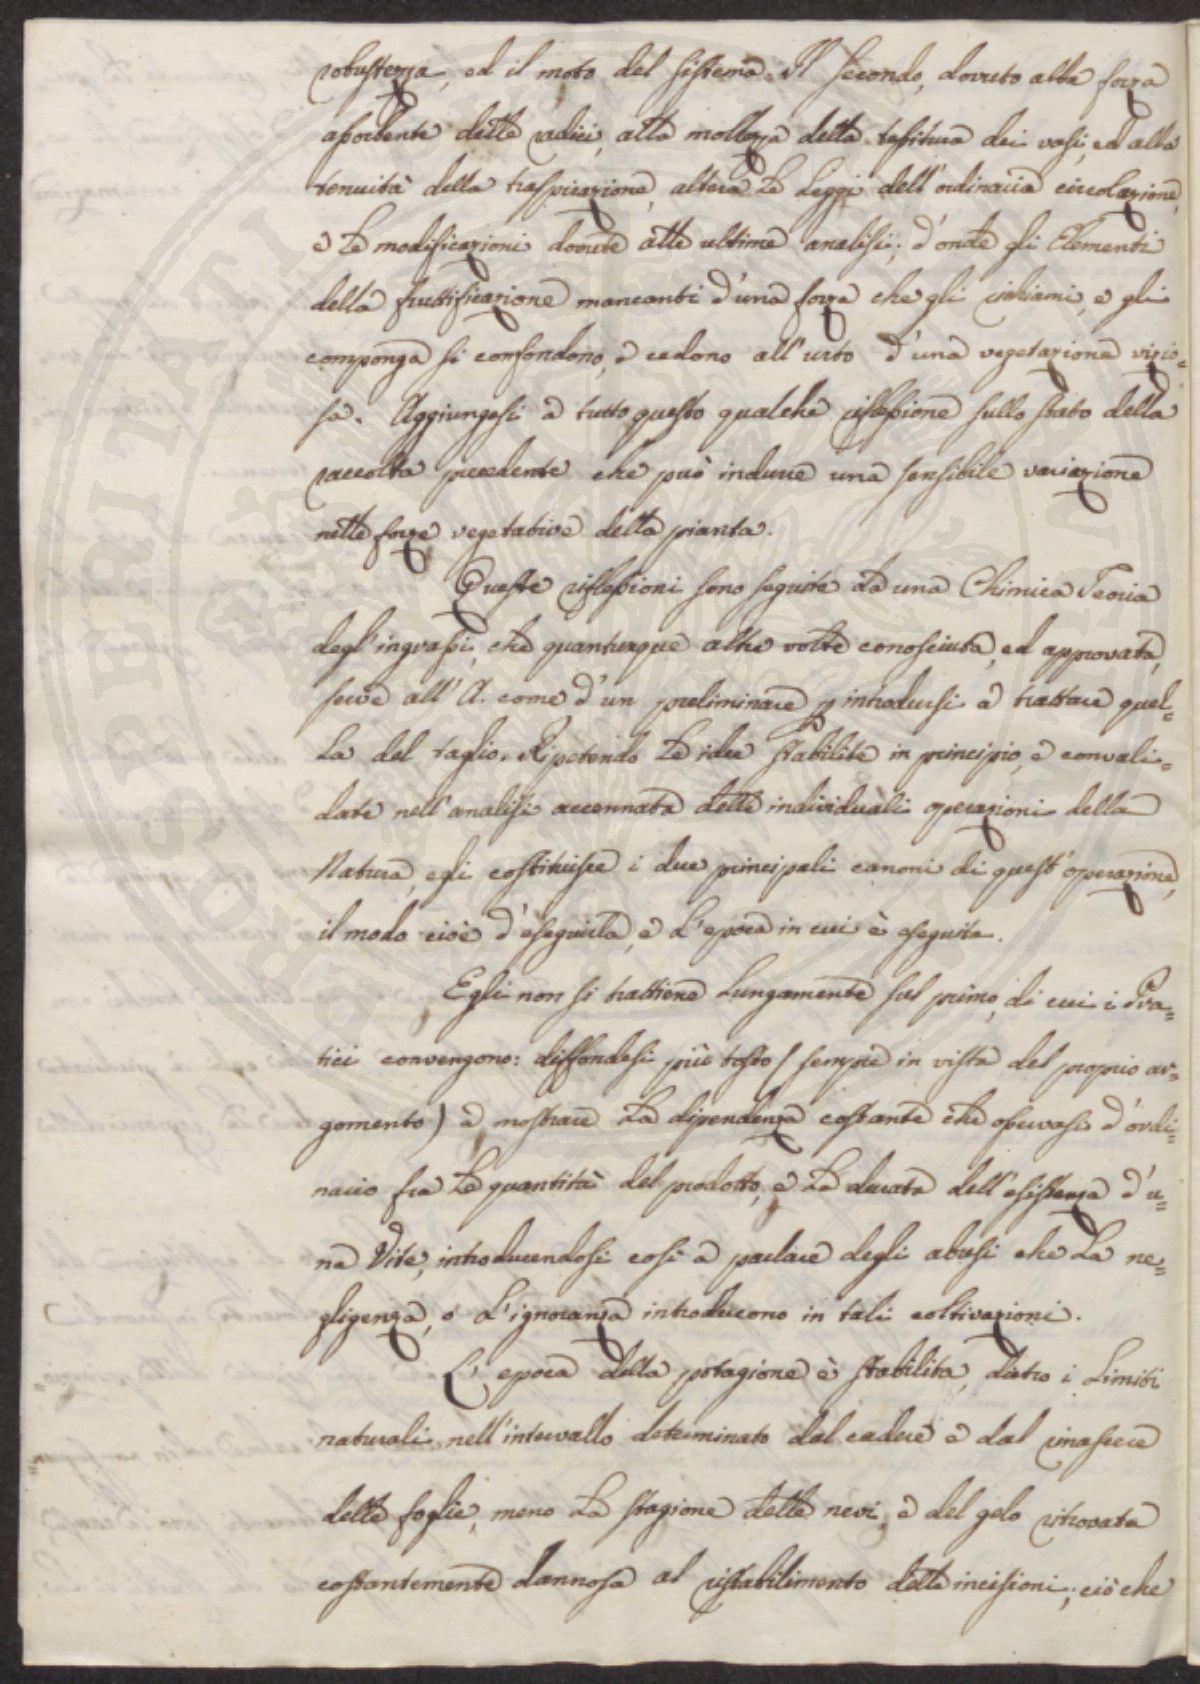 robustezza, ed il moto del sistema. Il secondo, dovuto alla forza
assorbente delle radici, alla mollezza della tessitura dei vasi, ed alla
tenuità della traspirazione, altera Le Leggi dell'ordinaria circolazione,
e Le modificazioni dovute alle ultime analisi; d'onde gli Elementi
della fruttificazione mancanti d'una forza che gli richiami, e gli
componga si confondono, e cedono all'urto d'una vegetazione vizio=
sa. Aggiungasi a tutto questo qualche riflessione sullo stato della
raccolta precedente che può indurre una sensibile variazione
nelle forze vegetative della pianta.
Queste riflessioni sono seguite da una Chimica Teoria
degl'ingrassi, che quantunque altre volte conosciuta, ed approvata,
serve all'A. come d'un preliminare p introdursi a trattare quel=
La del taglio. Ripetendo Le idee stabilite in principio, e convali=
date nell'analisi accennata delle individuali operazioni della
Natura, egli costituisce i due principali canoni di quest'operazione,
il modo cioè d'eseguirla, e L'epoca in cui è eseguita.
Egli non si trattiene Lungamente sul primo, di cui i Pra=
tici convengono: diffondesi più tosto (sempre in vista del proprio ar=
gomento) a mostrare La dipendenza costante che osservasi d'ordi=
nario fra Le quantità del prodotto, e La durata dell'esistenza d'u=
na Vite, introducendosi così a parlare degli abusi che La ne=
gligenza, o L'ignoranza introducono in tali coltivazioni.
L'epoca della potagione è stabilita, dietro i Limiti
naturali nell'intervallo determinato dal cadere e dal rinascere
delle foglie, meno La stagione delle nevi, e del gelo ritrovata
costantemente dannosa al ristabilimento delle incisioni; ciò che